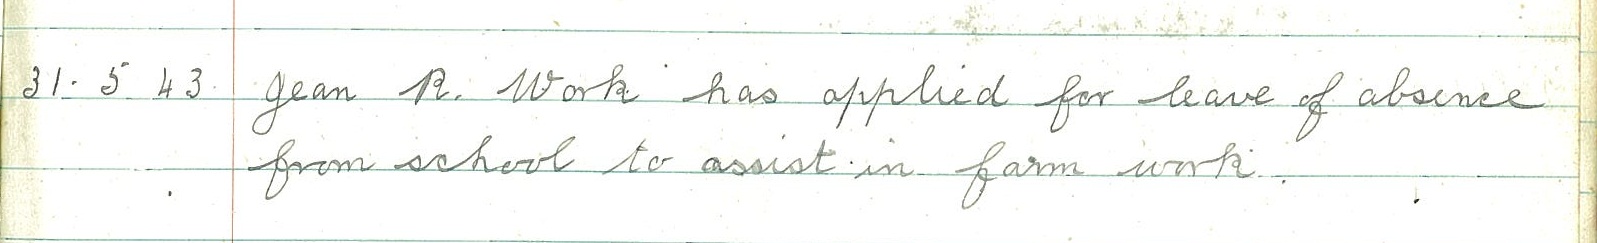 31. 5 43. Jean R. Work has applied for leave of absence
from school to assist in farm work.